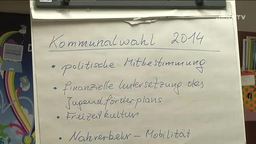 Kommunalwahl 2014
• politische Mitbestimmung
• finanzielle Untersetzung des
Jugendförderplans
• Freizeitkultur
• Nahverkehr - Mobilität
TV